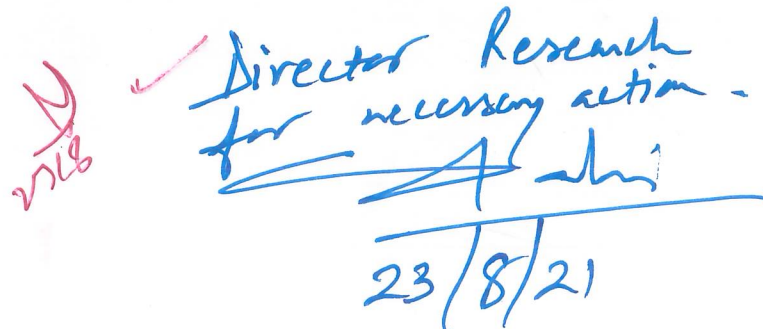 Director Research
for necessary action.
23/8/21